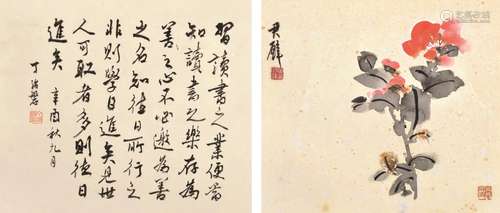 習讀書之業便當
知讀書之樂存為
善之心不必邀為善
之名知往日所行之
非則學日進矣見世
人可取者多則德日
進矣 辛酉秋九月
丁治磐
君麟